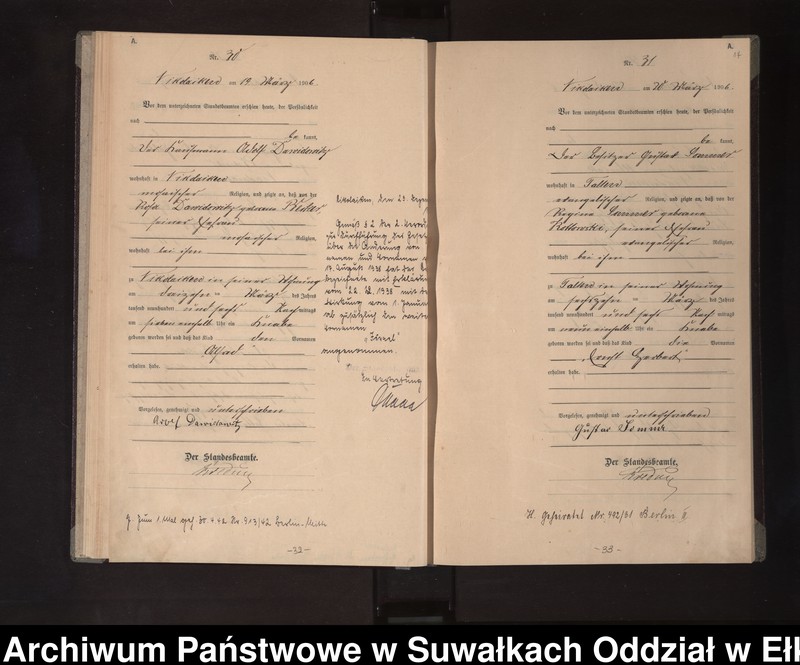 A.
Nr. 30
am 19 März 1906.
Vor dem unterzeichneten Standesbeamten erschien heute, der Persönlichkeit
nach
be kannt,
Der Kaufmann Adolf Dawidowitz
wohnhaft in
mosaischer Religion, und zeigte an, daß von der
Rosa Dawidowitz geborene
seiner Ehefrau
mosaischer Religion,
wohnhaft bei ihm
zu in seiner Wohnung
am März des Jahres
tausend neunhundert und sechs Nachmittags
um sieben einhalb Uhr ein Knabe
geboren worden sei und daß das Kind den Vornamen
Alfred
erhalten habe.
Vorgelesen, genehmigt und unterschrieben
Adolf Dawidowitz
Der Standesbeamte.
den 23.
Gemäß § 2 der 2.
zur Durchführung des
über die Änderung von
namen und Vornamen
17. August 1938 hat der
vom 22. 12. 1938 mit
Wirkung vom 1. Januar
ab zusätzlich den
Vornamen
„Israel“
angenommen.
In Vertretung
zum 1. Mal 4. 42 Nr. 913/42 Berlin-Mitte
-32-
A.
Nr. 31
am 20 März 1906.
Vor dem unterzeichneten Standesbeamten erschien heute, der Persönlichkeit
nach
be kannt,
Der Besitzer Gustav
wohnhaft in Talken
evangelischer Religion, und zeigte an, daß von der
Regina geborene
seiner Ehefrau
evangelischer Religion,
wohnhaft bei ihm
zu Talken in seiner Wohnung
am sechszehn März des Jahres
tausend neunhundert und sechs Nachmittags
um neun einhalb Uhr ein Knabe
geboren worden sei und daß das Kind die Vornamen
Ernst Herbert
erhalten habe.
Vorgelesen, genehmigt und unterschrieben
Gustav
Der Standesbeamte.
H. Geheiratet Nr. 492/31 Berlin II
-33-
Archiwum Państwowe w Suwałkach Oddział w Ełk